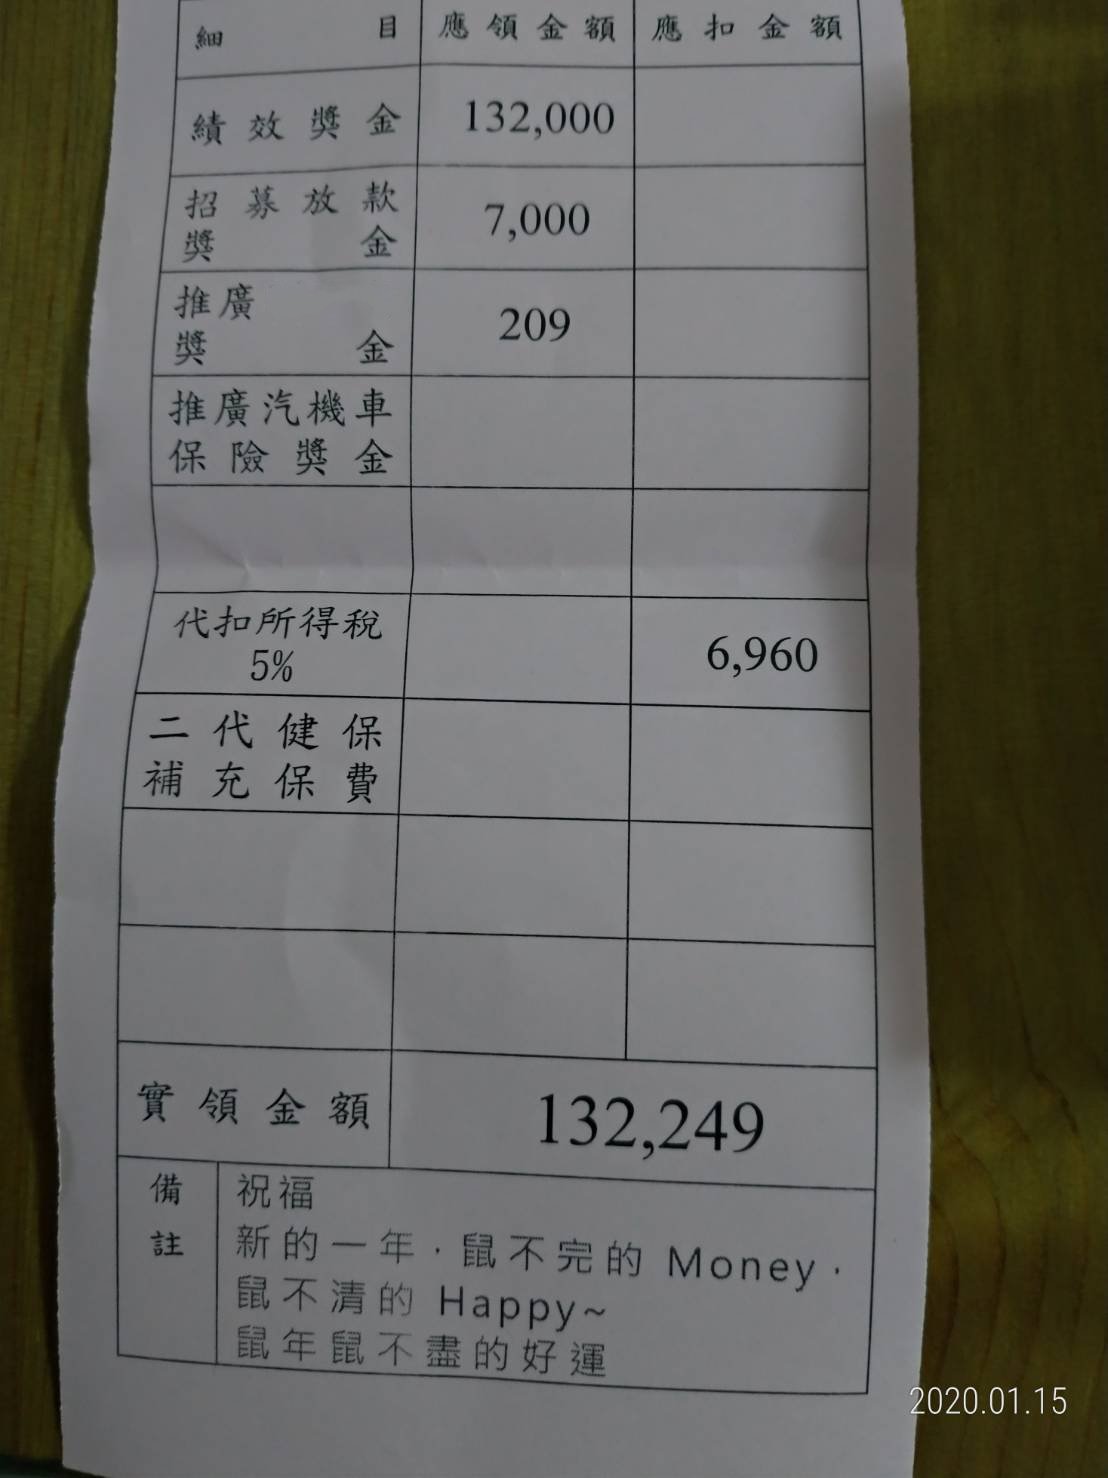 細目 應領金額 應扣金額
績效獎金 132,000
招募放款
獎金 7,000
推廣
獎金 209
推廣汽機車
保險獎金
代扣所得稅
5% 6,960
二代健保
補充保費
實領金額 132,249
備註
祝福
新的一年，鼠不完的 Money，
鼠不清的 Happy~
鼠年鼠不盡的好運
2020.01.15